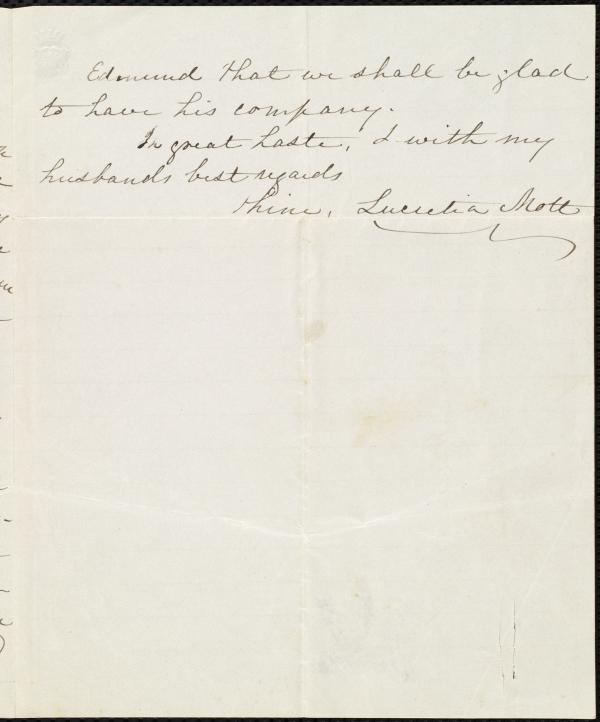 Edmund that we shall be glad
to have his company.
In great haste, & with my
husbands best regards
thine, Lucretia Mott